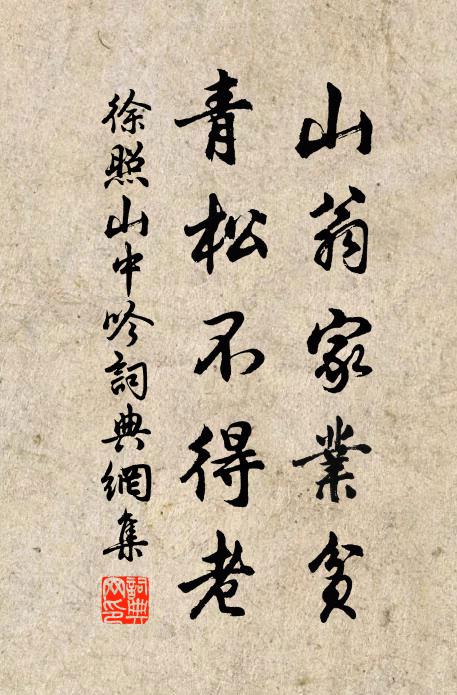 山翁家業貧
青松不得老
徐照山中吟詞典網集
詞典網印